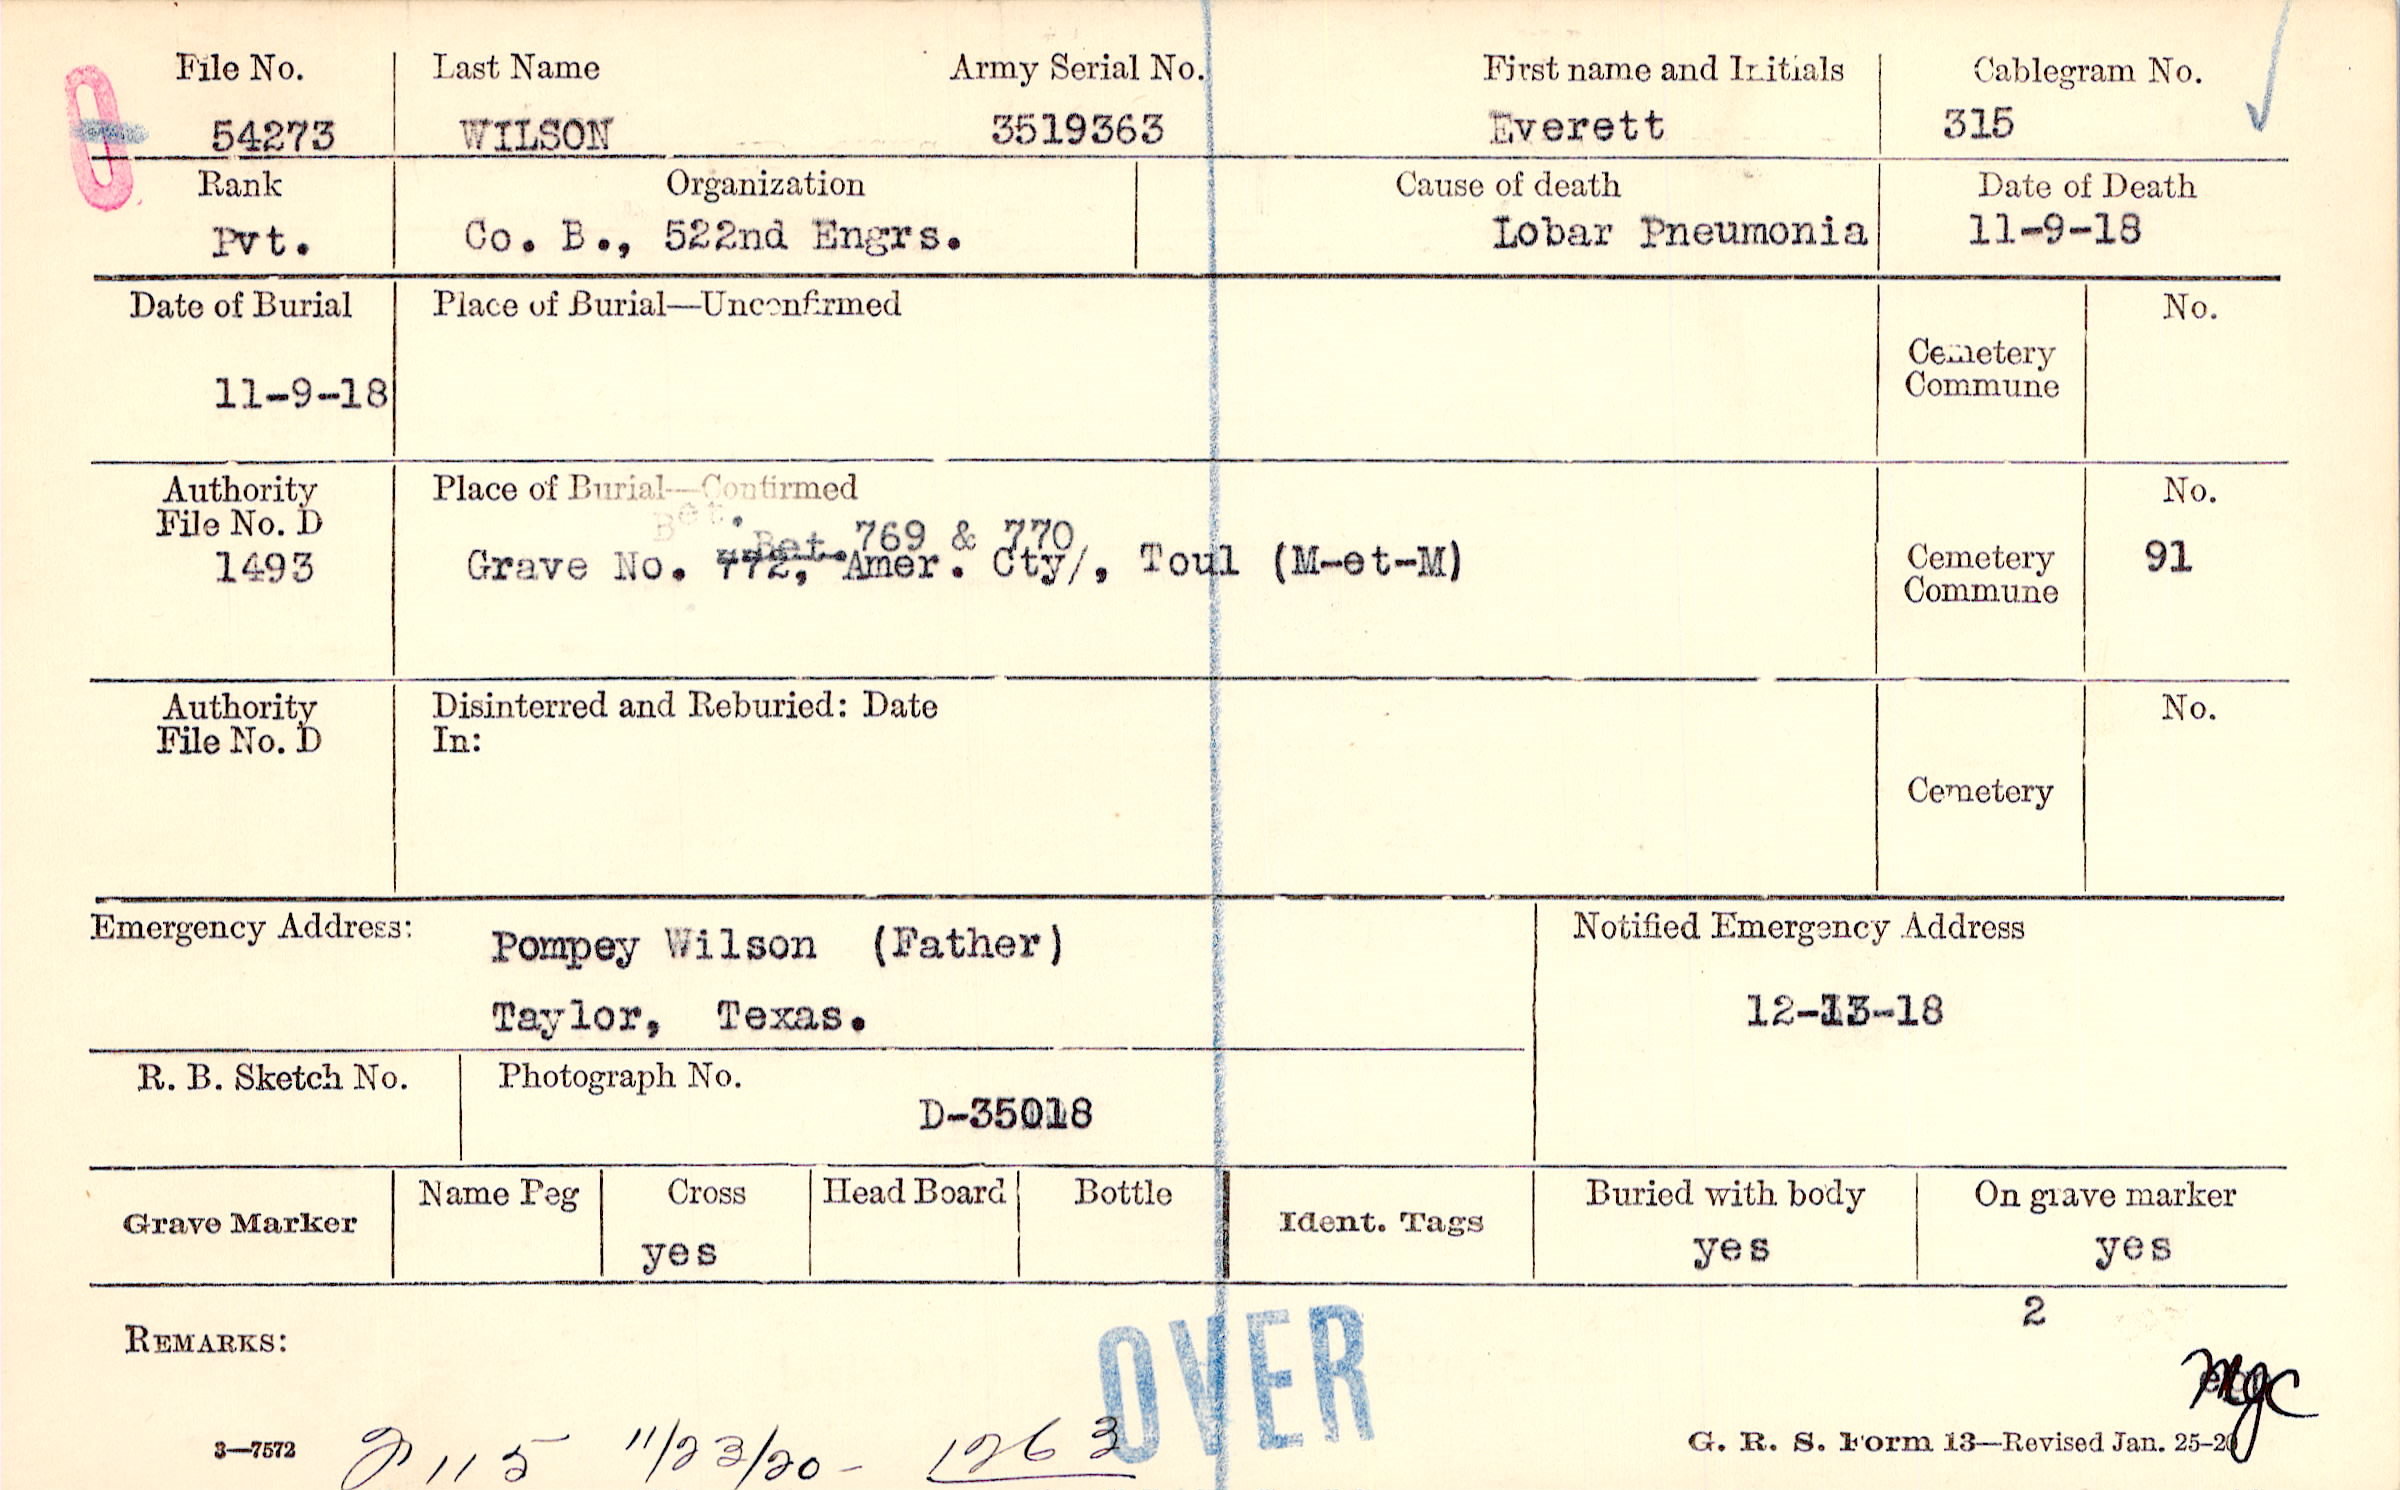 File No. Last Name Army Serial No. First name and Initials Cablegram No.
54273 WILSON 3519363 Everett 315
Rank Organization Cause of death Date of Death
Pvt. Co. B., 522nd Engrs. Lobar Pneumonia 11-9-18
Date of Burial Place of Burial—Unconfirmed No.
Cemetery
Commune
11-9-18
Authority Place of Burial—Confirmed No.
File No. D Bet.
Bet. 769 & 770
1493 Grave No. 772, Amer. Cty/, Toul (M-et-M) Cemetery 91
Commune
Authority Disinterred and Reburied: Date No.
File No. D In:
Cemetery
Emergency Address: Notified Emergency Address
Pompey Wilson (Father)
Taylor, Texas. 12-13-18
R. B. Sketch No. Photograph No.
D-35018
Grave Marker Name Peg Cross Head Board Bottle Ident. Tags Buried with body On grave marker
yes yes yes
2
REMARKS:
OVER
mgc
3—7572 115 11/23/20 - 1263 G. R. S. Form 13—Revised Jan. 25-20